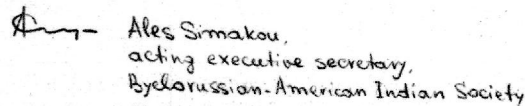 Ales Simakou,
acting executive secretary,
Byelorussian-American Indian Society